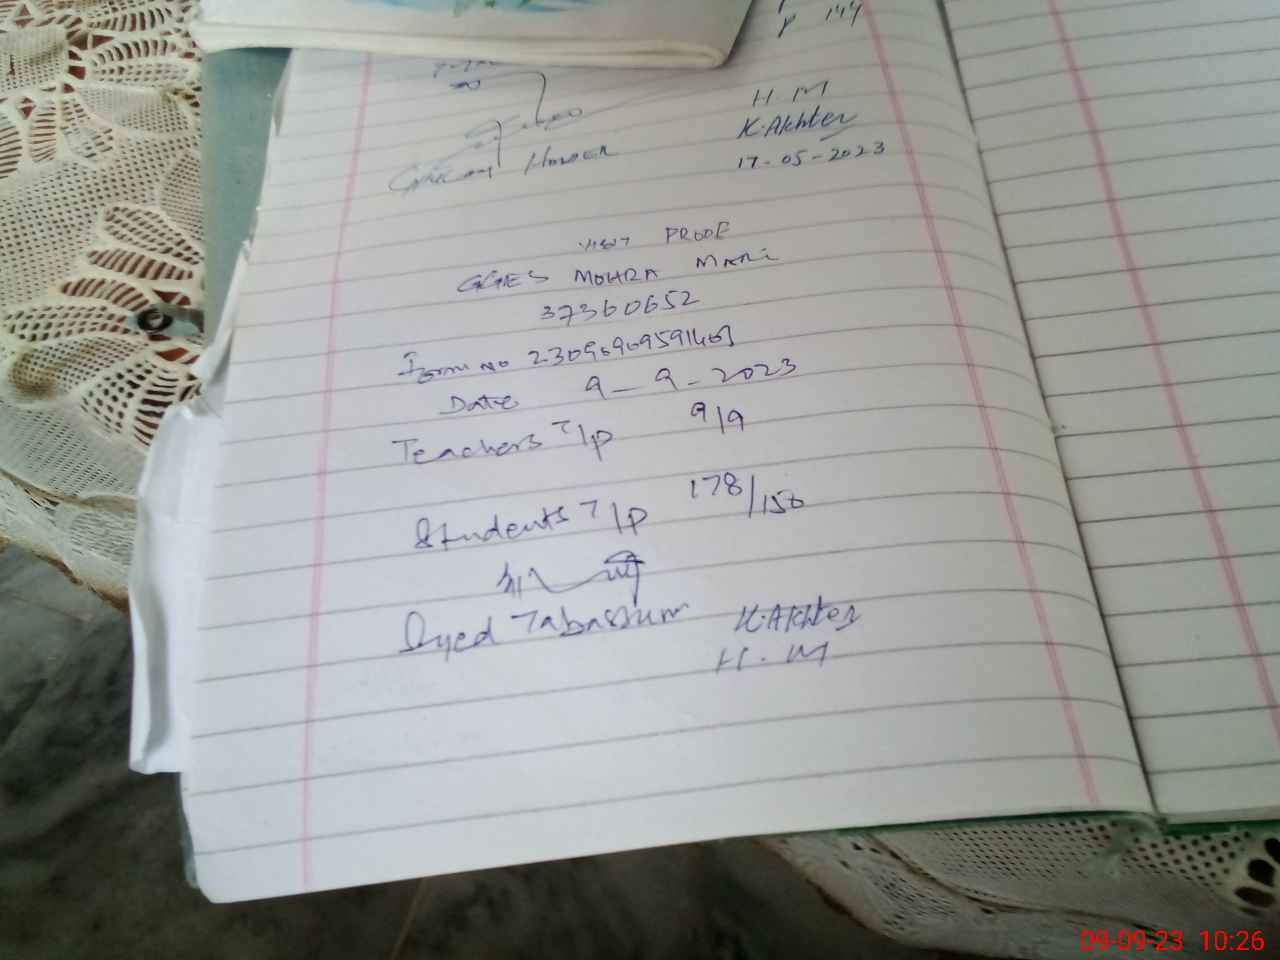 P 144
H. M
K. Akhter
17-05-2023
Visit PROOF
GGES MOHRA Mari
37360652
Form No
Date 9-9-2023
Teachers T/p 9/9
Students T/p 178/158
Syed Tabassum K. Akhter
H. M
09-09-23 10:26